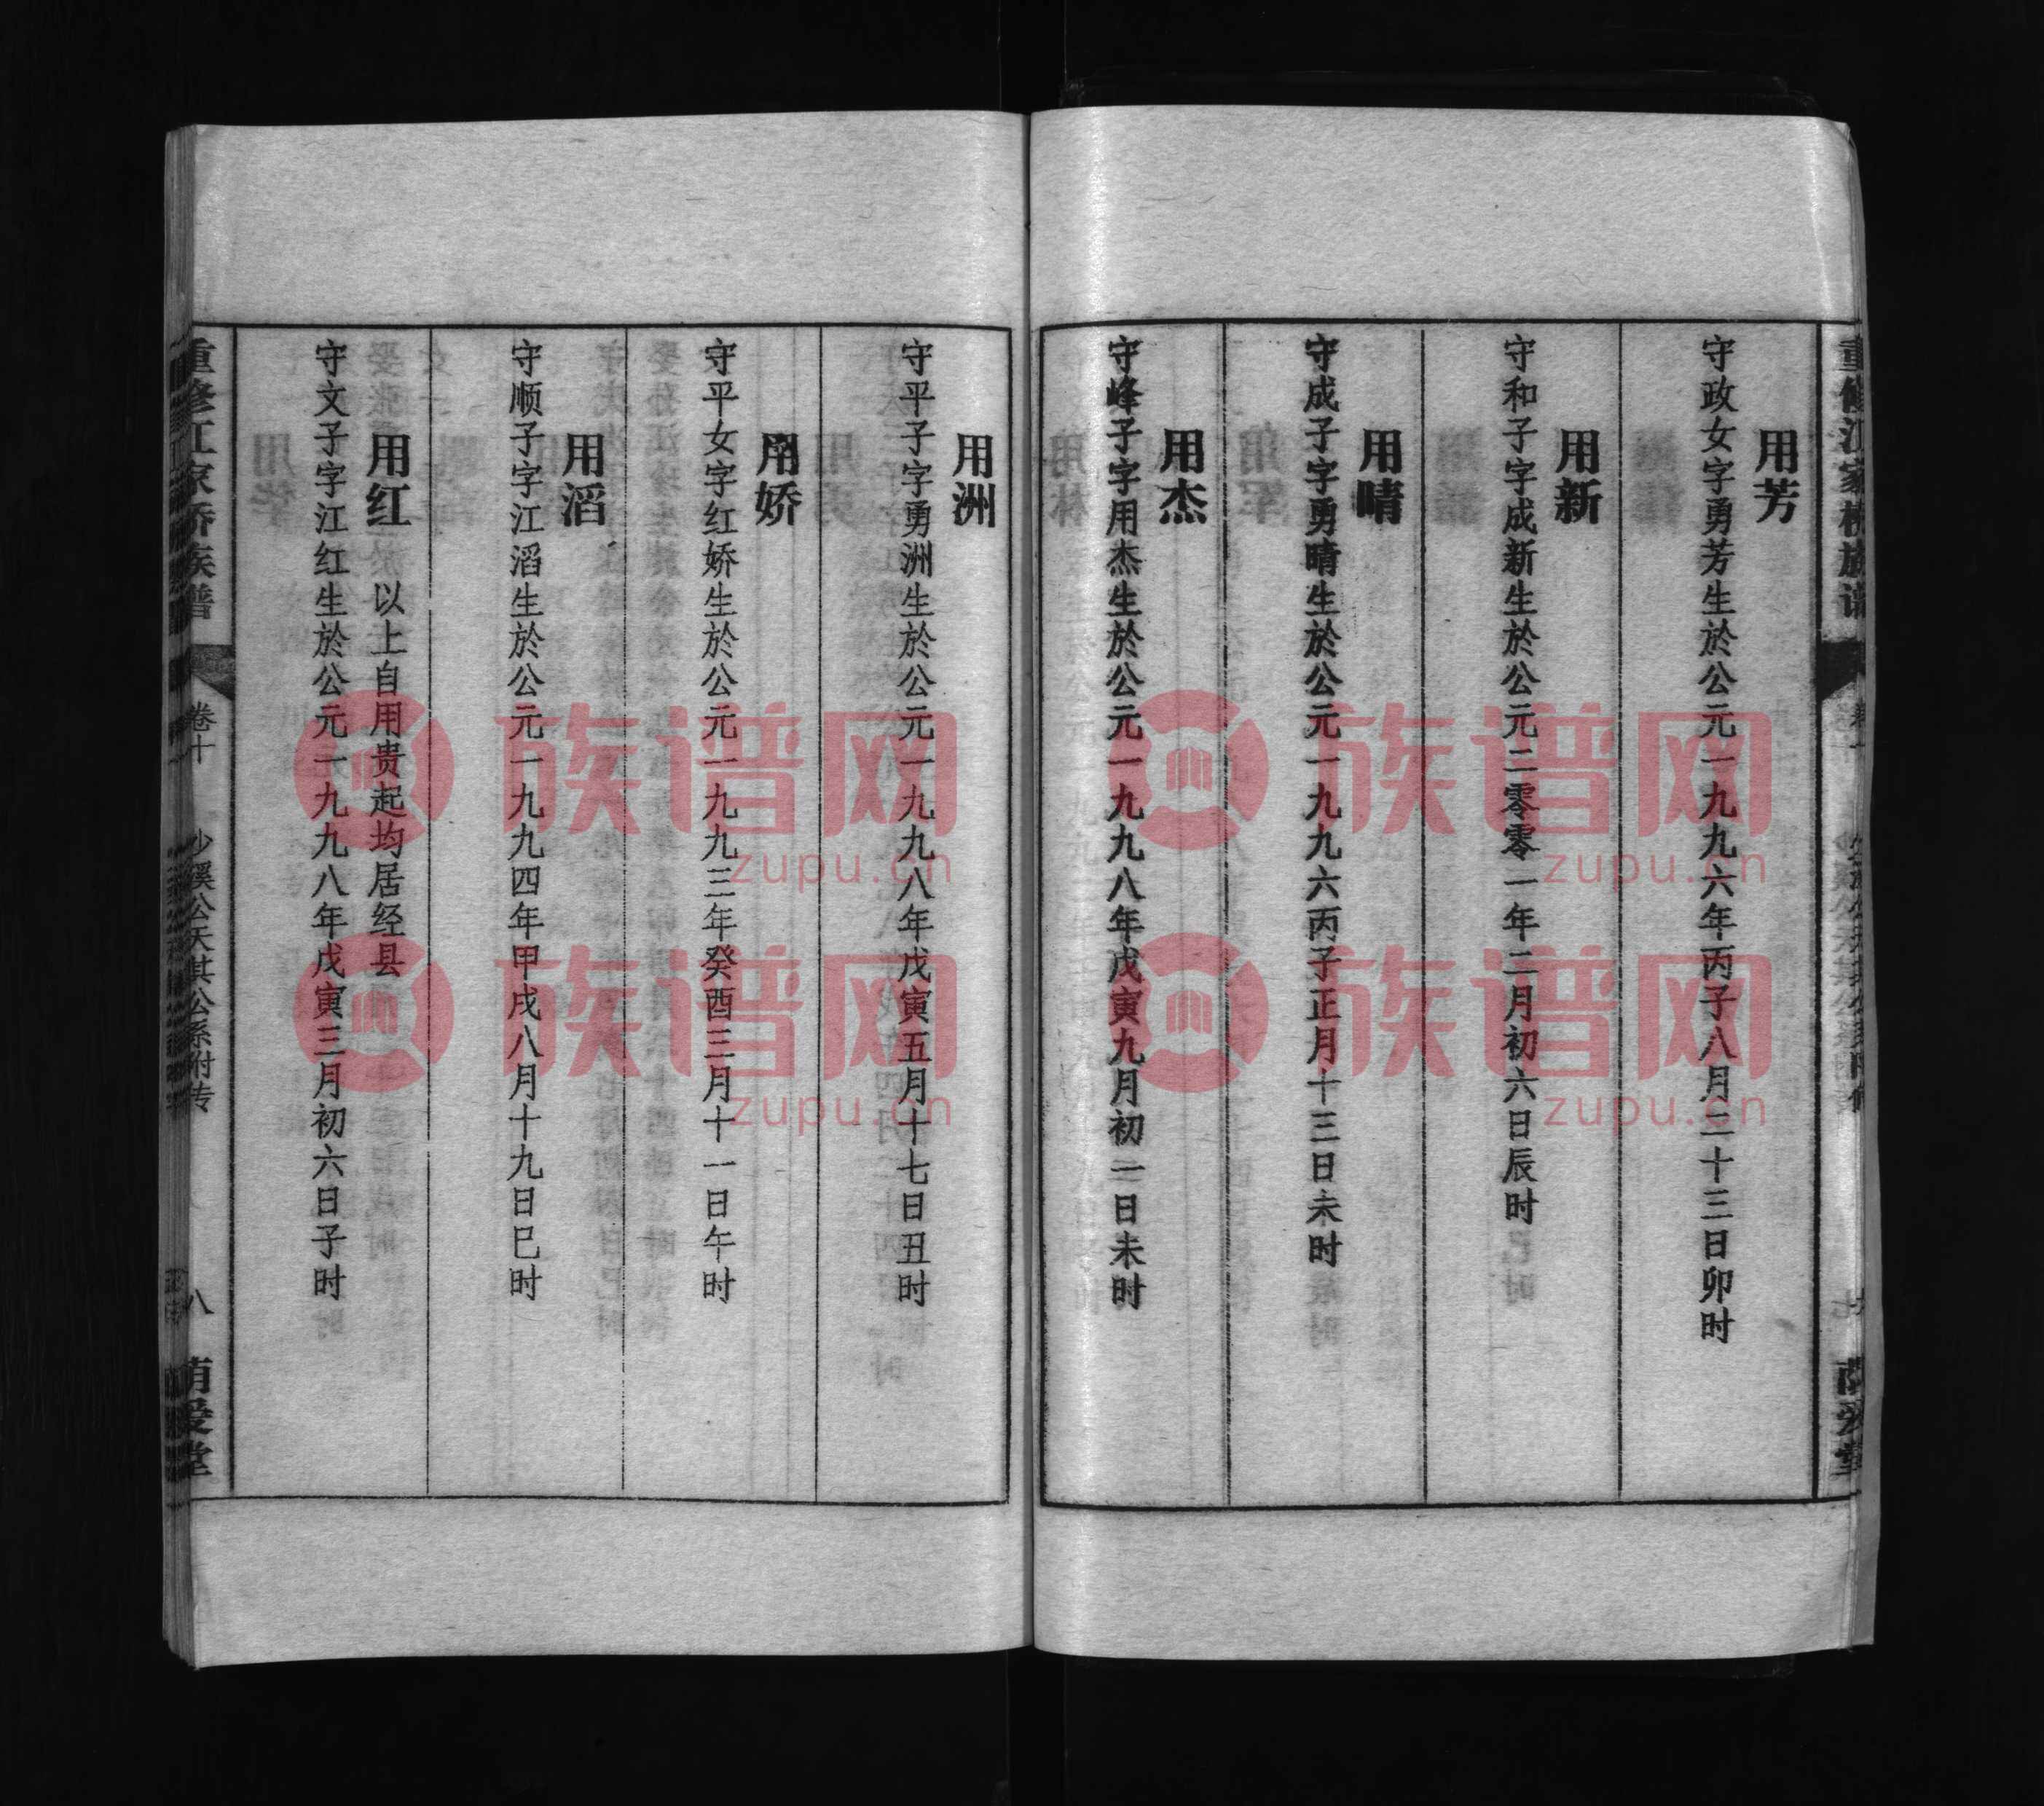 用芳
守政女字勇芳生於公元一九九六年丙子八月二十三日卯时
用新
守和子字成新生於公元二零零一年二月初六日辰时
用晴
守成子字勇晴生於公元一九九六丙子正月十三日未时
用杰
守峰子字用杰生於公元一九九八年戊寅九月初二日未时
用洲
守平子字勇洲生於公元一九九八年戊寅五月十七日丑时
用娇
守平女字红娇生於公元一九九三年癸酉三月十一日午时
用滔
守顺子字江滔生於公元一九九四年甲戌八月十九日巳时
用红 以上自用贵起均居经县
守文子字江红生於公元一九九八年戊寅三月初六日子时
重修江家桥族谱 卷十 沙溪公天其公系附传 八 荫爱堂
族谱网
zupu.cn
族谱网
zupu.cn
族谱网
zupu.cn
族谱网
zupu.cn